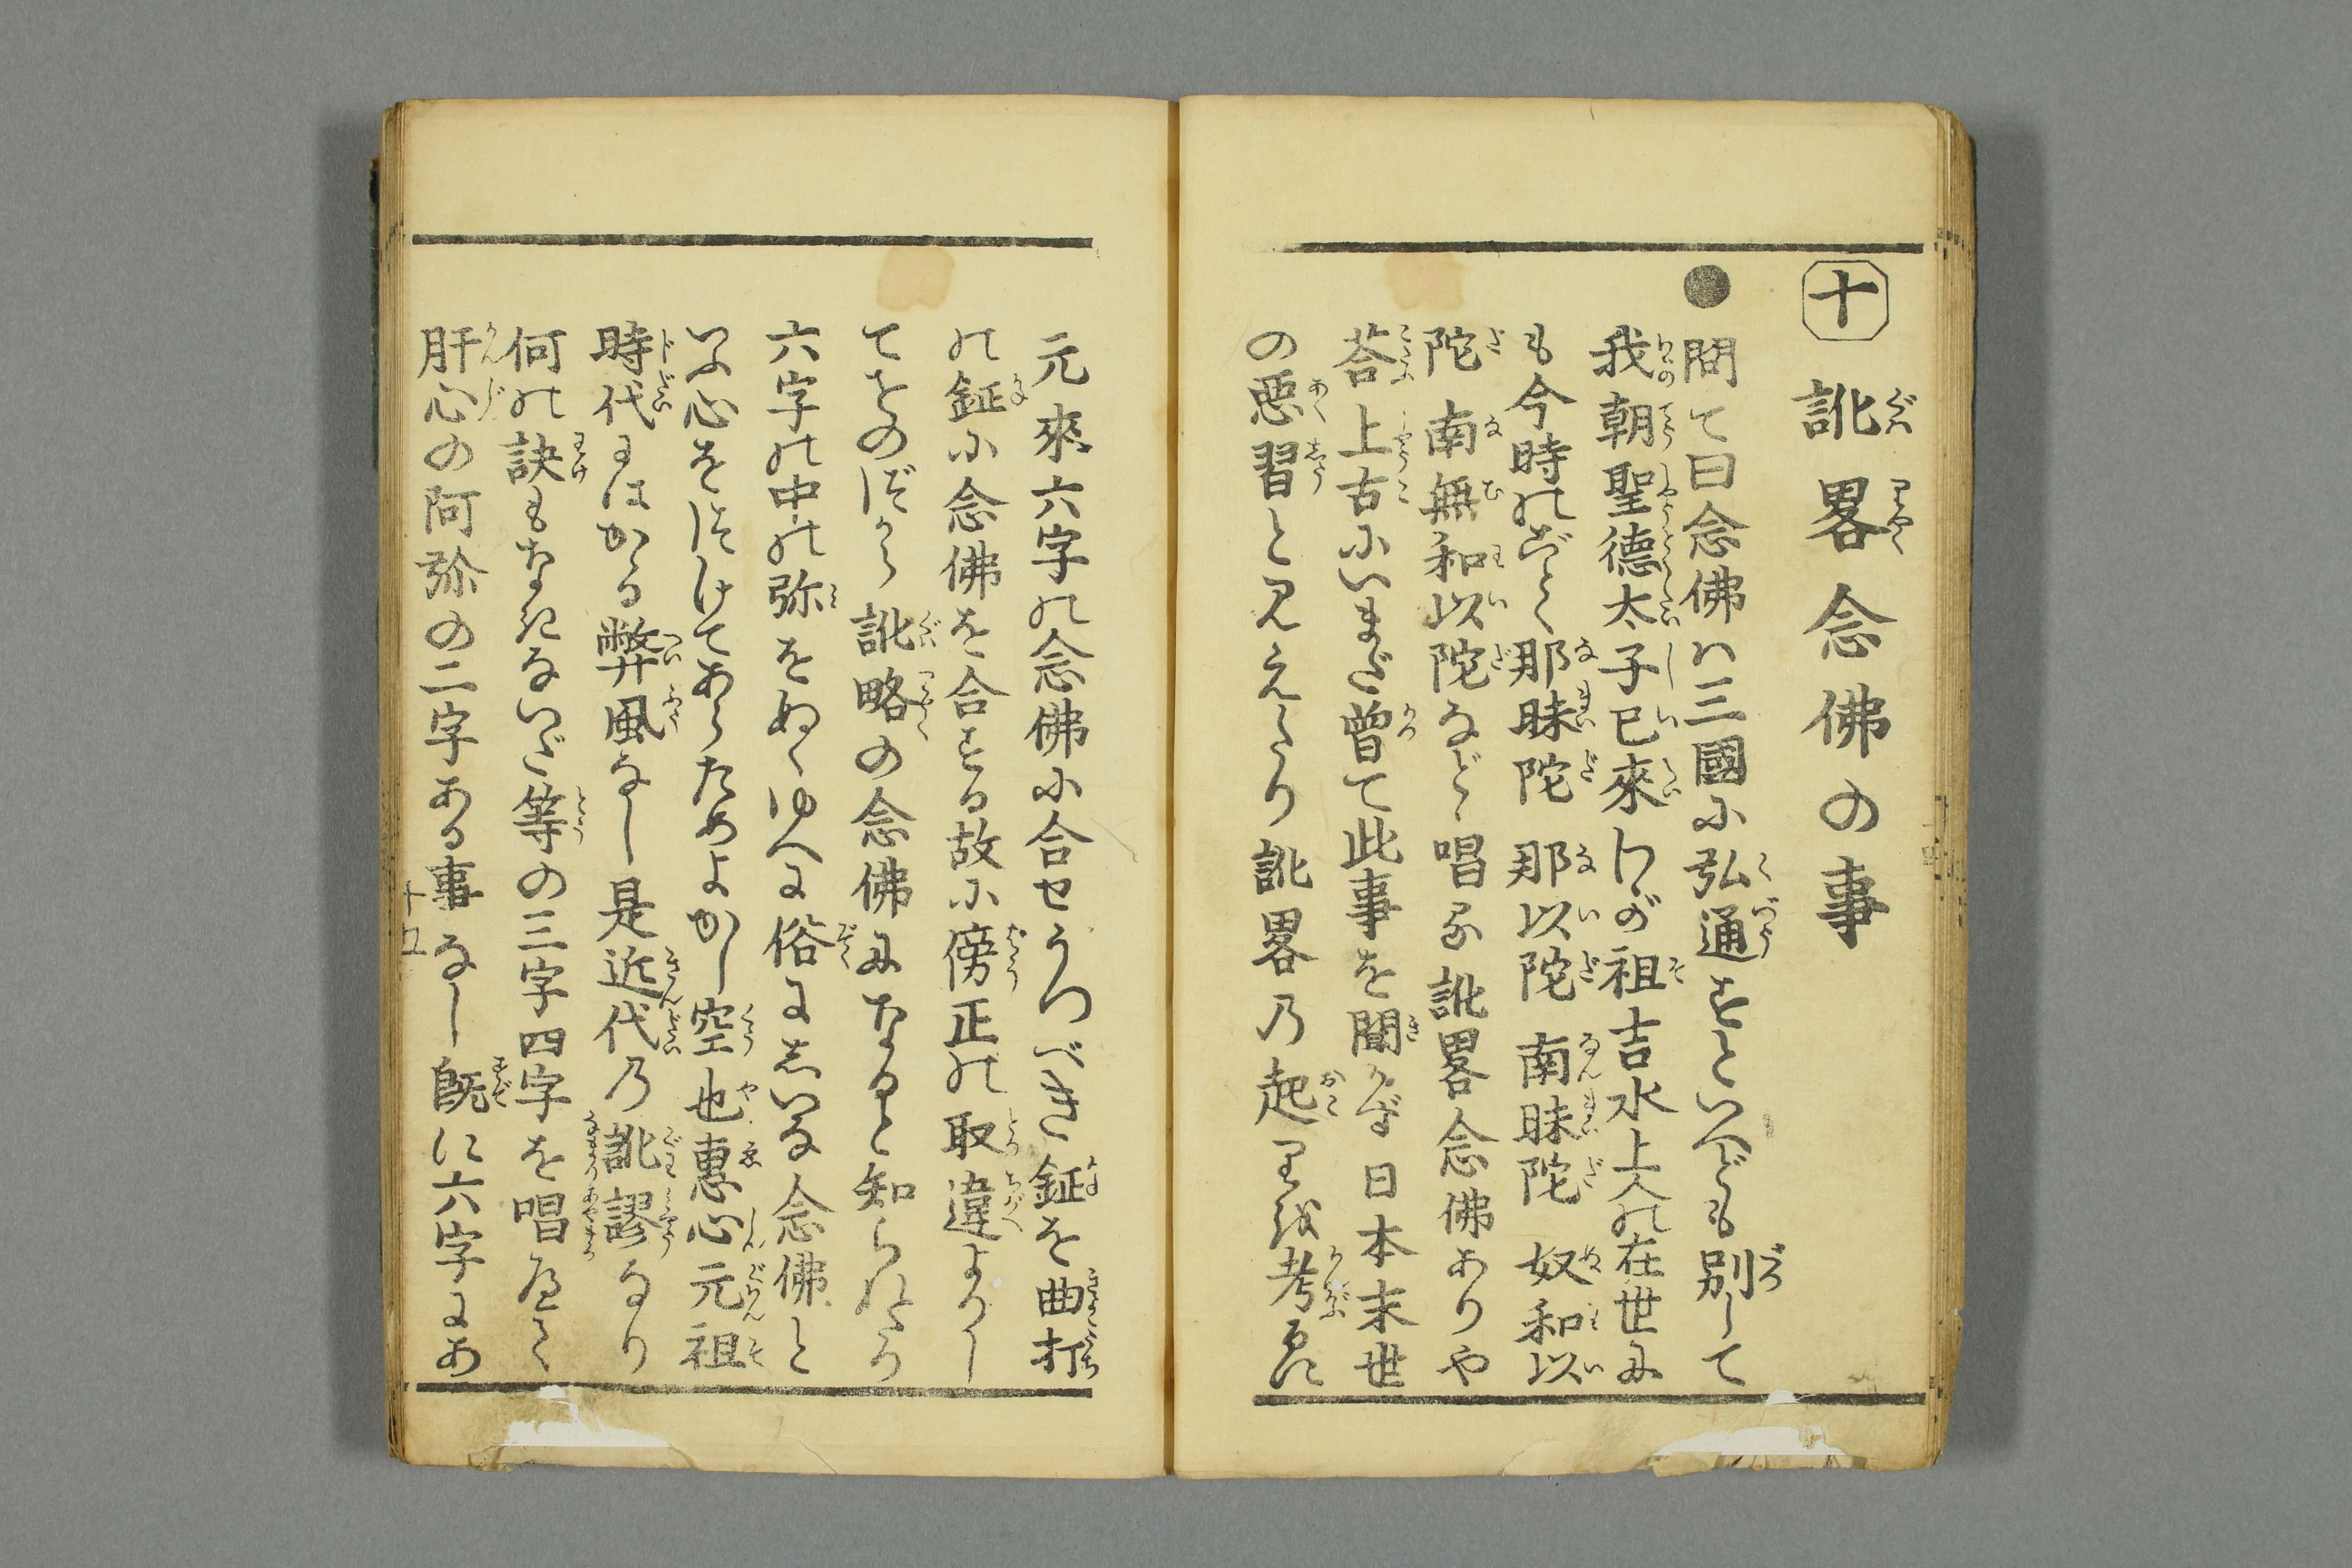 十 訛畧念佛の事
●問て曰念佛ハ三國に弘通すといへども別して
我朝聖德太子已來わが祖吉水上人の在世に
も今時のごとく那昧陀 那以陀 南昧陀 奴和以
陀 南無和以陀など唱る訛畧念佛ありや
荅 上古にいまだ曾て此事を聞かず日本末世
の悪習と見えたり訛畧乃起りを考るに
元來六字の念佛に合せうつべき鉦を曲打
の鉦に念佛を合する故に傍正の取違よりし
てをのづから訛略の念佛になると知られたり
六字の中の弥をぬくゆへに俗にしいな念佛と
いふ心をつけてあらためよかし空也惠心元祖
時代にはかゝる弊風なし是近代乃訛謬なり
何の訣もなきないだ等の三字四字を唱へて
肝心の阿弥の二字ある事なし既に六字にあ